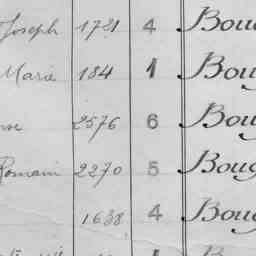 Joseph 1721 4 Bou
Marie 184 1 Bou
2576 6 Bou
Romain 2270 5 Boug
1638 4 Bou